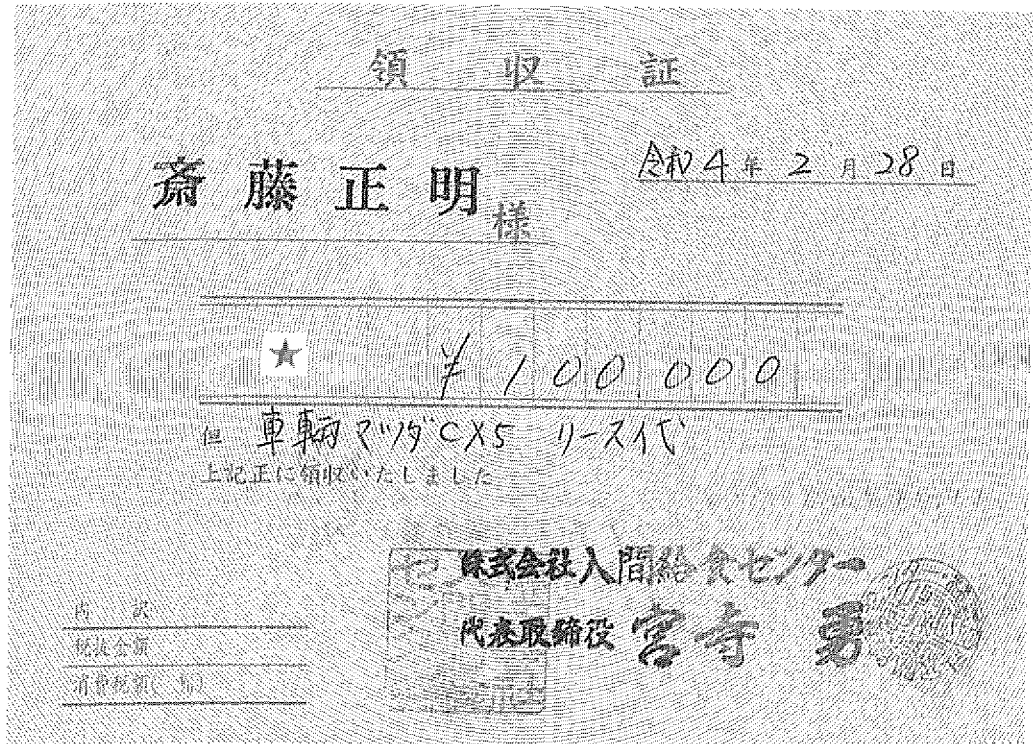 領収証
令和4年2月28日
斎藤正明様
★ ¥100000
但 車輌マツダCX5 リース代
上記正に領収いたしました
株式会社入間給食センター
代表取締役 宮寺勇
内訳
税抜金額
消費税額( %)